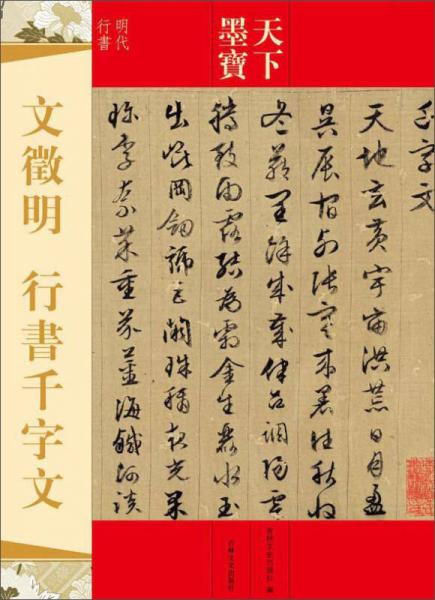 天下
墨寶
明代
行書
文徵明 行書千字文
千字文
天地玄黄宇宙洪荒日月盈
昃辰宿列張寒来暑往秋收
冬藏閏餘成歲律召調陽雲
騰致雨露結為霜金生麗水玉
出崐岡劍號巨闕珠稱夜光果
珍李柰菜重芥薑海鹹河淡
吉林文史出版社 編
吉林文史出版社